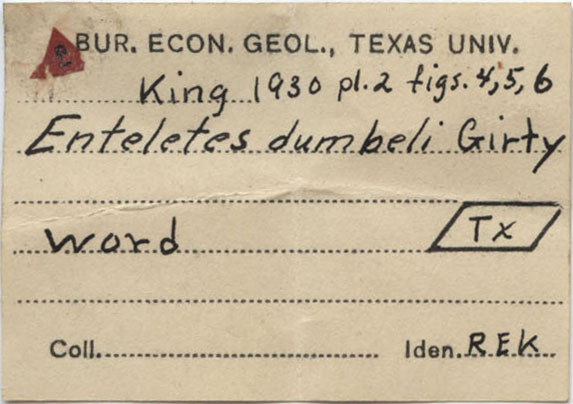 BUR. ECON. GEOL., TEXAS UNIV.
King 1930 pl.2 figs. 4,5,6
Enteletes dumbeli Girty
Word
Tx
Coll. Iden. REK